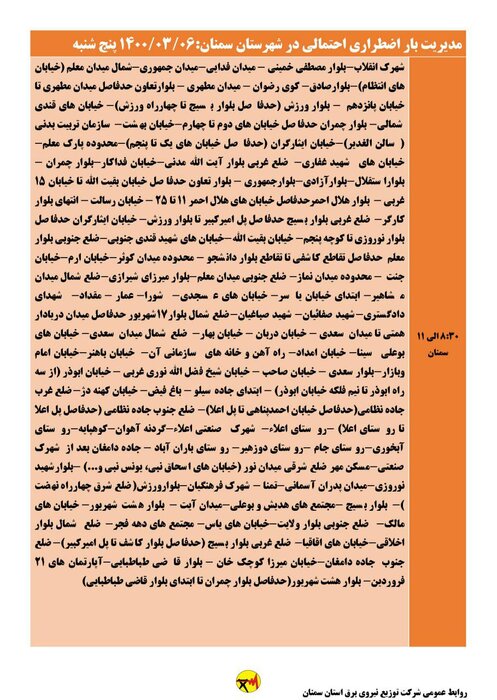 مدیریت بار اضطراری احتمالی در شهرستان سمنان:۱۴۰۰/۰۳/۰۶ پنج شنبه
شهرک انقلاب-بلوار مصطفی خمینی - میدان فدایی-میدان جمهوری-شمال میدان معلم (خیابان
های انتظام)-بلوارصادق- کوی رضوان - میدان مطهری - بلوارتعاون حدفاصل میدان مطهری تا
خیابان پانزدهم - بلوار ورزش (حدفاصل بلوار بسیج تا چهارراه ورزش)- خیابان های قندی
شمالی- بلوار چمران حدفاصل خیابان های دوم تا چهارم-خیابان بهشت- سازمان تربیت بدنی
( سالن الغدیر)-خیابان ایثارگران (حدفاصل خیابان های یک تا پنجم)-محدوده پارک معلم-
خیابان های شهید غفاری- ضلع غربی بلوار آیت الله مدنی-خیابان فداکار-بلوار چمران -
بلوارا ستقلال-بلوارآزادی-بلوارجمهوری - بلوار تعاون حدفاصل خیابان بقیت الله تا خیابان ۱۵
غربی - بلوار هلال احمرحدفاصل خیابان های هلال احمر ۱۱ تا ۲۵ - خیابان رسالت - انتهای بلوار
کارگر- ضلع غربی بلوار بسیج حدفاصل پل امیرکبیر تا بلوار ورزش - خیابان ایثارگران حدفاصل
بلوار نوروزی تا کوچه پنجم- خیابان بقیت الله-خیابان های شهید قندی جنوبی-ضلع جنوبی بلوار
معلم حدفاصل تقاطع کاشفی تا تقاطع بلوار دانشجو - محدوده میدان کوثر-خیابان ارم-خیابان
جنت - محدوده میدان نماز- ضلع جنوبی میدان معلم-بلوار میرزای شیرازی-ضلع شمال میدان
مشاهیر- ابتدای خیابان یاسر-خیابان های ۶ مسجدی- شورا- عمار - مقداد- شهدای
دادگستری-شهید صفائیان- شهید صباغیان- ضلع شمال بلوار۱۷شهریور حدفاصل میدان دریادار
همتی تا میدان سعدی - خیابان دربان - خیابان بهار- ضلع شمال میدان سعدی- خیابان های
بوعلی سینا- خیابان امداد- راه آهن و خانه های سازمانی آن- خیابان باهنر-خیابان امام
وبازار-بلوار سعدی - خیابان صاحب - خیابان شیخ فضل الله نوری غربی - خیابان ابوذر (از سه
راه ابوذر تا نیم فلکه خیابان ابوذر) - ابتدای جاده سیلو - باغ فیض- خیابان کهنه دژ-ضلع غرب
جاده نظامی(حدفاصل خیابان احمدپناهی تا پل اعلا)- ضلع جنوب جاده نظامی (حدفاصل پل اعلا
تا روستای اعلا) -روستای اعلاء- شهرک صنعتی اعلاء-گردنه آهوان-کوهپایه-روستای
آبخوری-روستای جام -روستای دوزهیر- روستای یاران آباد - جاده دامغان بعد از شهرک
صنعتی-مسکن مهر ضلع شرقی میدان نور (خیابان های اسحاق نبی، یونس نبی و...) -بلوارشهید
نوروزی-میدان پدران آسمانی-تمنا - شهرک فرهنگیان-بلوارورزش(ضلع شرق چهارراه نهضت
)- بلوار بسیج -مجتمع های هدیش و بوعلی-میدان آیت - بلوار هشت شهریور- خیابان های
مالک- ضلع جنوبی بلوار ولایت-خیابان های یاس- مجتمع های دهه فجر- ضلع شمال بلوار
اخلاقی-خیابان های اقاقیا- ضلع غربی بلوار بسیج (حدفاصل بلوار کاشف تا پل امیرکبیر)- ضلع
جنوب جاده دامغان-خیابان میرزا کوچک خان - بلوار قاضی طباطبایی-آپارتمان های ۲۱
فروردین- بلوار هشت شهریور(حدفاصل بلوار چمران تا ابتدای بلوار قاضی طباطبایی)
۸:۳۰ الی ۱۱
سمنان
روابط عمومی شرکت توزیع نیروی برق استان سمنان